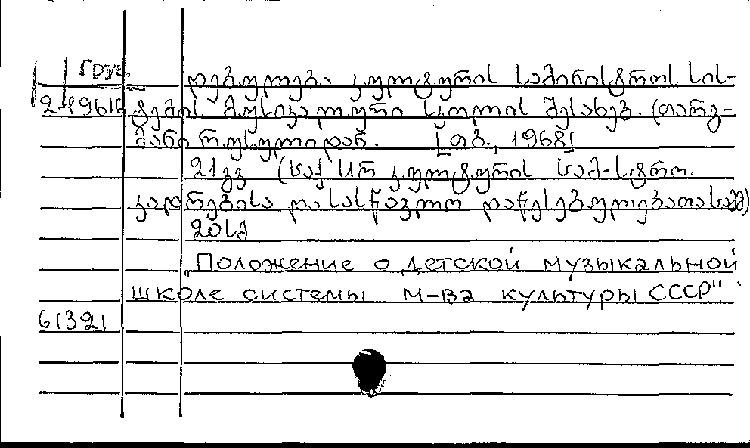 Груз.
დებულება კულტურის სამინისტროს სის-
ტემის მუსიკალური სკოლის შესახებ. (თარგ-
მანი რუსულიდან. [თბ., 1968]
21 გვ (საქ. სსრ კულტურის სამ-სტრო.
კადრებისა და სასწავლო დაწესებულებათა სამმ)
20სმ
„Положение о детской музыкальной
школе системы м-ва культуры СССР"
61321